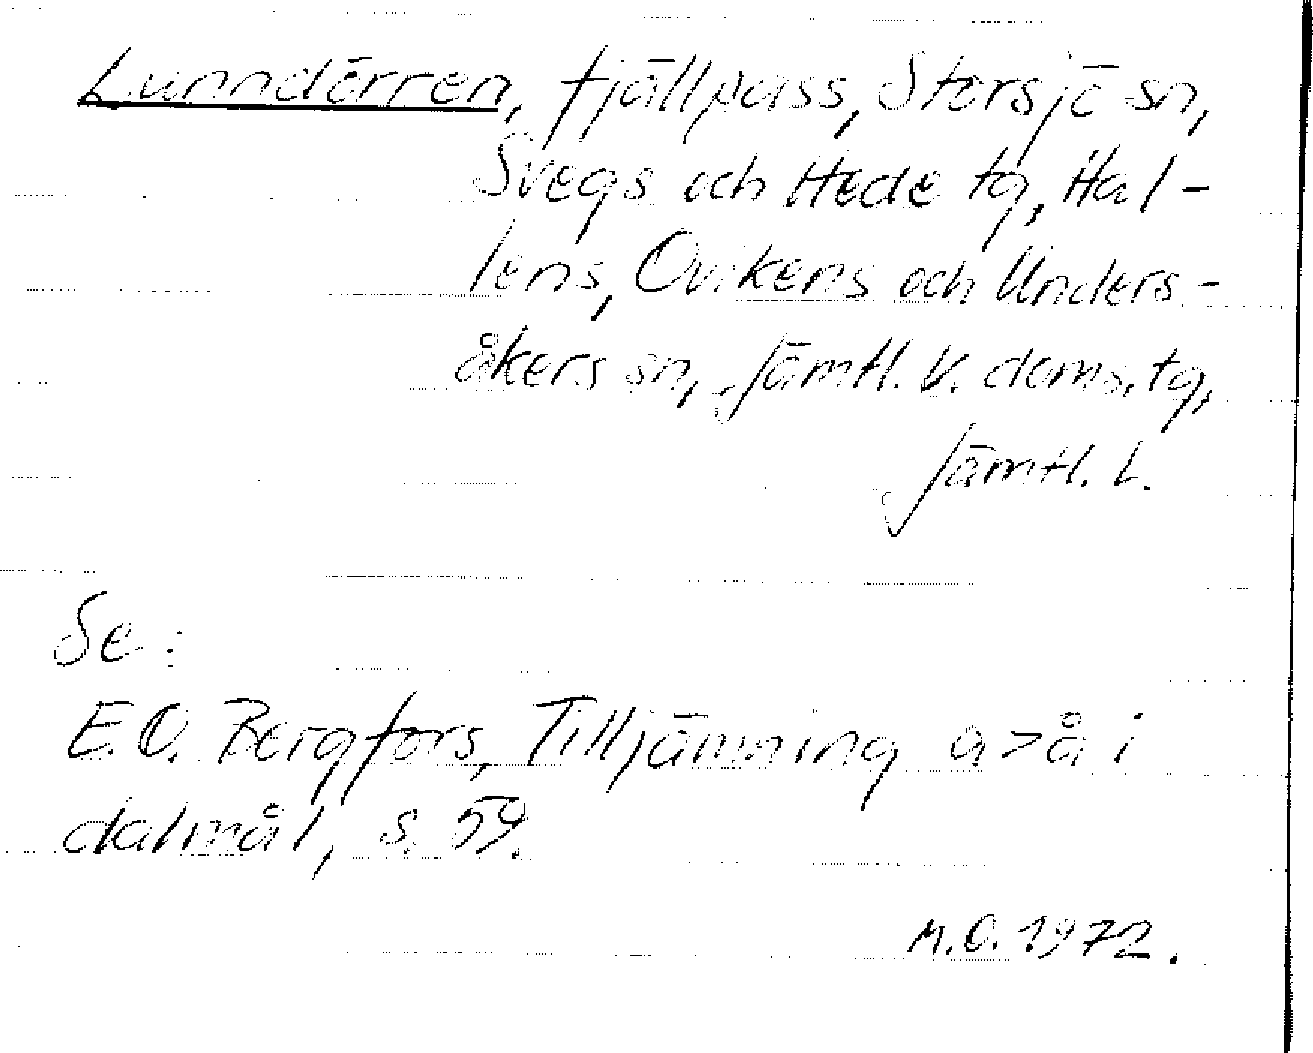 Lunndörren, fjällpass, Storsjö sn,
Svegs och Hede tg, Hal-
lens, Ovikens och Unders-
åkers sn, Jämtl. v. doms. tg,
Jämtl. l.
Se:
E.O. Bergfors, Tilljämning a>å i
dalmål, s. 59.
M.O. 1972.